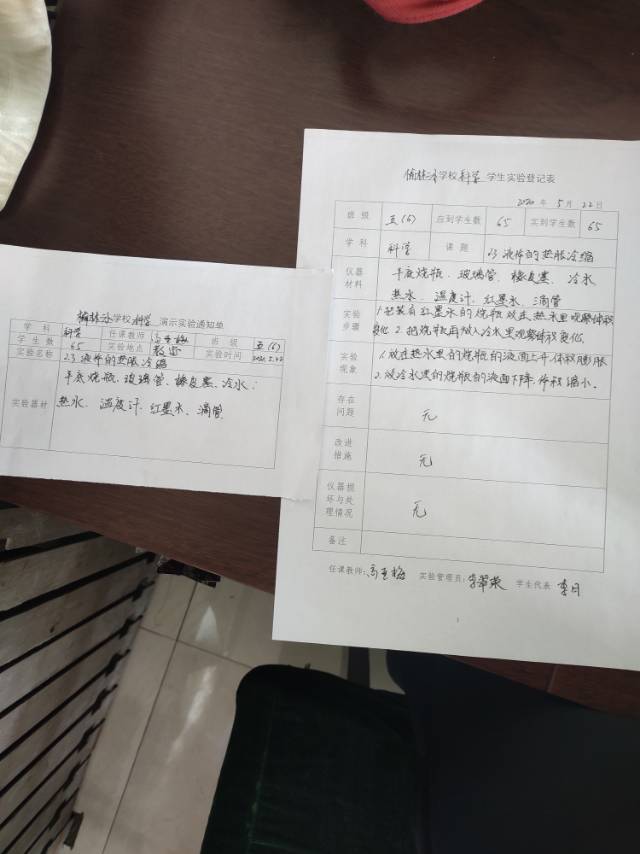 学校科学演示实验通知单
学科 科学 任课教师 班级 五(6)
学生数 65 实验地点 教室 实验时间
实验名称 23液体的热胀冷缩
实验器材 平底烧瓶、玻璃管、橡皮塞、冷水、
热水、温度计、红墨水、滴管
学校科学学生实验登记表
2020年5月22日
班级 五(6) 应到学生数 65 实到学生数 65
学科 科学 课题 23液体的热胀冷缩
仪器材料 平底烧瓶、玻璃管、橡皮塞、冷水
热水、温度计、红墨水、滴管
实验步骤 1.把装有红墨水的烧瓶放在热水里观察体积
变化 2.把烧瓶再放入冷水里观察体积变化.
实验现象 1.放在热水里的烧瓶的液面上升,体积膨胀
2.放冷水里的烧瓶的液面下降,体积缩小.
存在问题 无
改进措施 无
仪器损坏与处理情况 无
备注
任课教师: 实验管理员: 学生代表